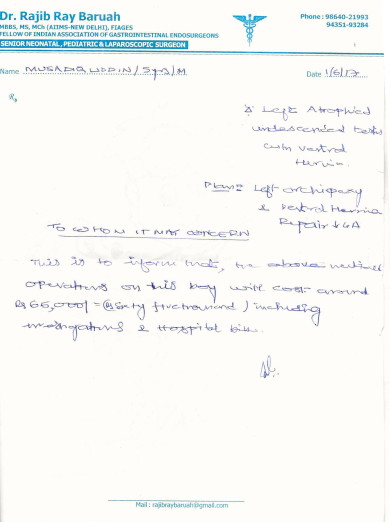 Dr. Rajib Ray Baruah
MBBS, MS, MCh (AIIMS-NEW DELHI), FIAGES
FELLOW OF INDIAN ASSOCIATION OF GASTROINTESTINAL ENDOSURGEONS
SENIOR NEONATAL, PEDIATRIC & LAPAROSCOPIC SURGEON
Phone : 98640-21993
94351-93284
Name MUSADIQ UDDIN / 5yrs/M
Date 1/6/17
Rx
Left Atrophied
undescended testis
with ventral
Hernia.
Plan:- Left orchiopexy
& Ventral Hernia
Repair GA
TO WHOM IT MAY CONCERN
This is to inform that, the above mentioned
operations on this boy will cost around
Rs 65,000/= (Rs Sixty five thousand) including
investigations & Hospital bills.
Mail : rajibraybaruah@gmail.com